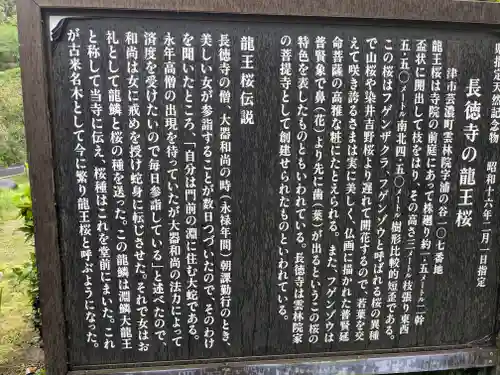 指定天然記念物　昭和十六年二月一日指定
長徳寺の龍王桜
津市芸濃町雲林院字浦の谷一〇七番地
龍王桜は寺院の前庭にあって株廻り約一・五メートル一幹
盃状に開出して枝をはり、その高さ三メートル枝張り東西
五・五〇メートル南北四・五〇メートル樹形比較的短歪である。
この桜はフゲンザクラ、フゲンゾウと呼ばれる桜の異種
で山桜や染井吉野桜より遅れて開花するので、若葉を交
えて咲き誇るさまは実に美しく、仏画に描かれた普賢延
命菩薩の高雅な粧にたとえられる。また、フゲンゾウは
普賢象で鼻（花）より先に歯（葉）が出るというこの桜の
特色を表したものともいわれている。長徳寺は雲林院家
の菩提寺として創建せられたものといわれている。
龍王桜伝説
長徳寺の僧、大器和尚の時（永禄年間）朝課勤行のとき、
美しい女が参詣することが数日つづいたので、そのわけ
を聞いたところ、「自分は門前の淵に住む大蛇である。
永年高僧の出現を待っていたが大器和尚の法力によって
済度を受けたいので毎日参詣している」と述べたので、
和尚は女に戒めを授け蛇身に転じさせた。それで女はお
礼として龍鱗と桜の種を送った。この龍鱗は淵鱗大龍王
と称して当寺に伝え、桜種はこれを堂前にまいた。これ
が古来名木として今に繁り龍王桜と呼ぶようになった。